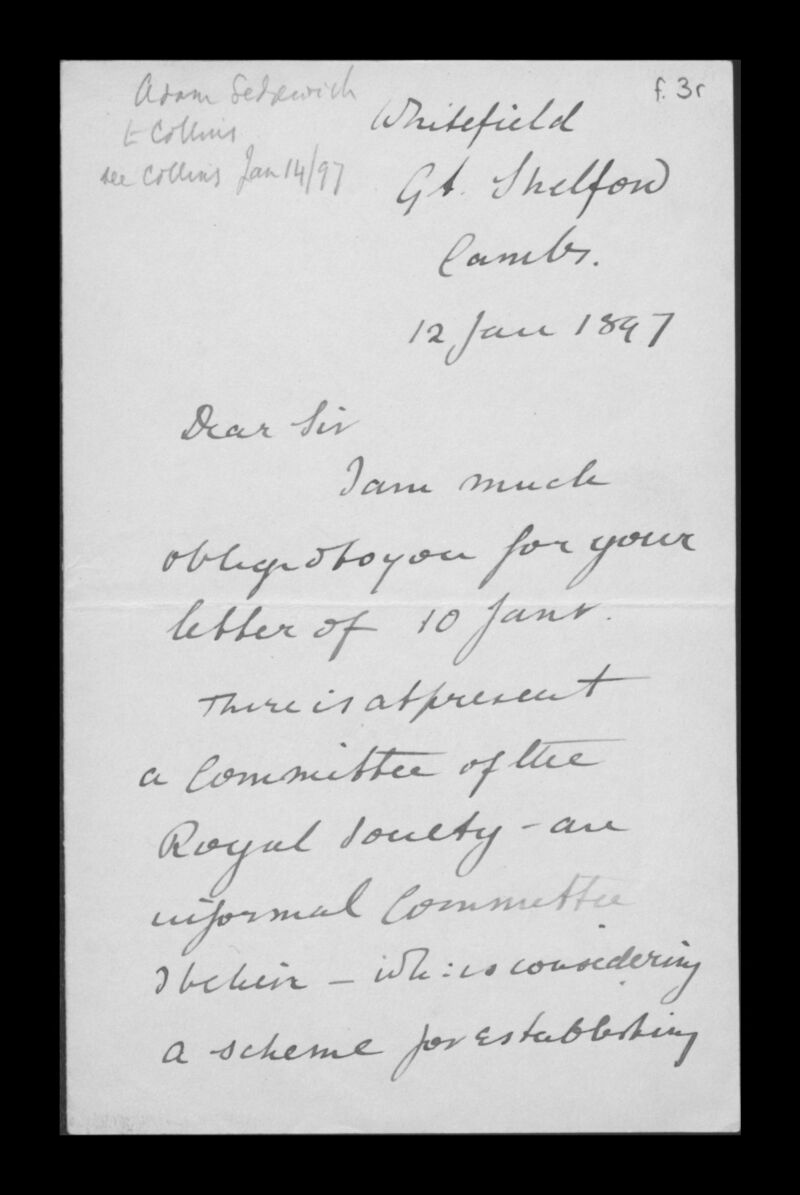 Adam Sedgwick
to Collins
see Collins Jan 14/97
f. 3r
Whitefield
Gt. Shelford
Cambs.
12 Jan 1897
Dear Sir
I am much
obliged to you for your
letter of 10 Janr.
There is at present
a Committee of the
Royal Society - an
informal Committee
I believe - wh: is considering
a scheme for establishing